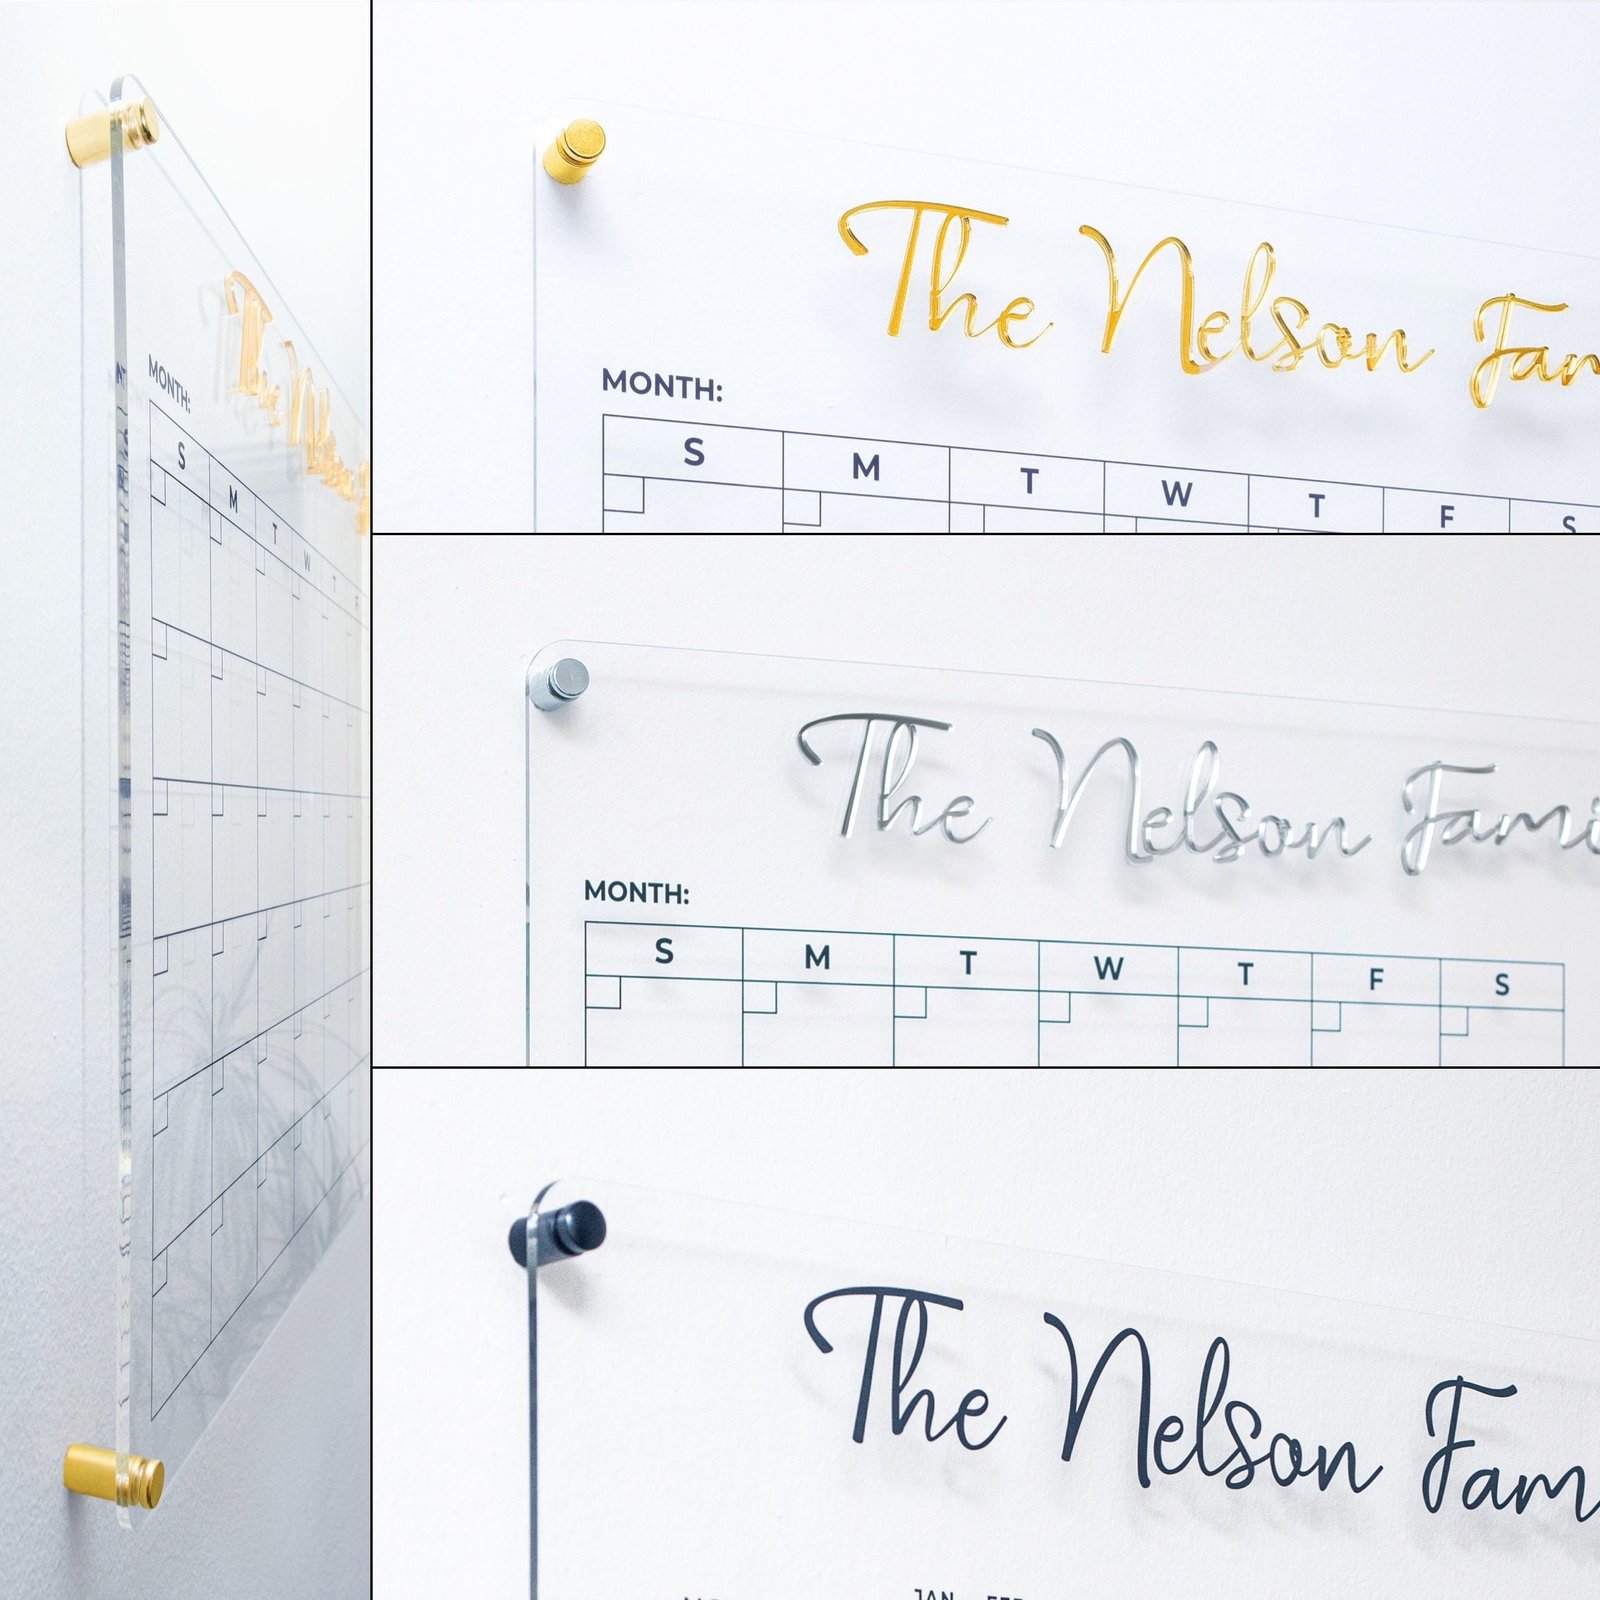 The
MONTH:
S M T W T F
The Nelson Fam
MONTH:
S M T W T F S
The Nelson Fami
MONTH:
S M T W T F S
The Nelson Fam
JAN FEB